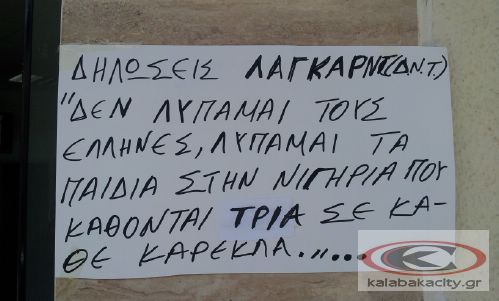 ΔΗΛΩΣΕΙΣ ΛΑΓΚΑΡΝΤ(Δ.Ν.Τ.)
"ΔΕΝ ΛΥΠΑΜΑΙ ΤΟΥΣ
ΕΛΛΗΝΕΣ, ΛΥΠΑΜΑΙ ΤΑ
ΠΑΙΔΙΑ ΣΤΗΝ ΝΙΓΗΡΙΑ ΠΟΥ
ΚΑΘΟΝΤΑΙ ΤΡΙΑ ΣΕ ΚΑ-
ΘΕ ΚΑΡΕΚΛΑ.,,...
kalabakacity.gr